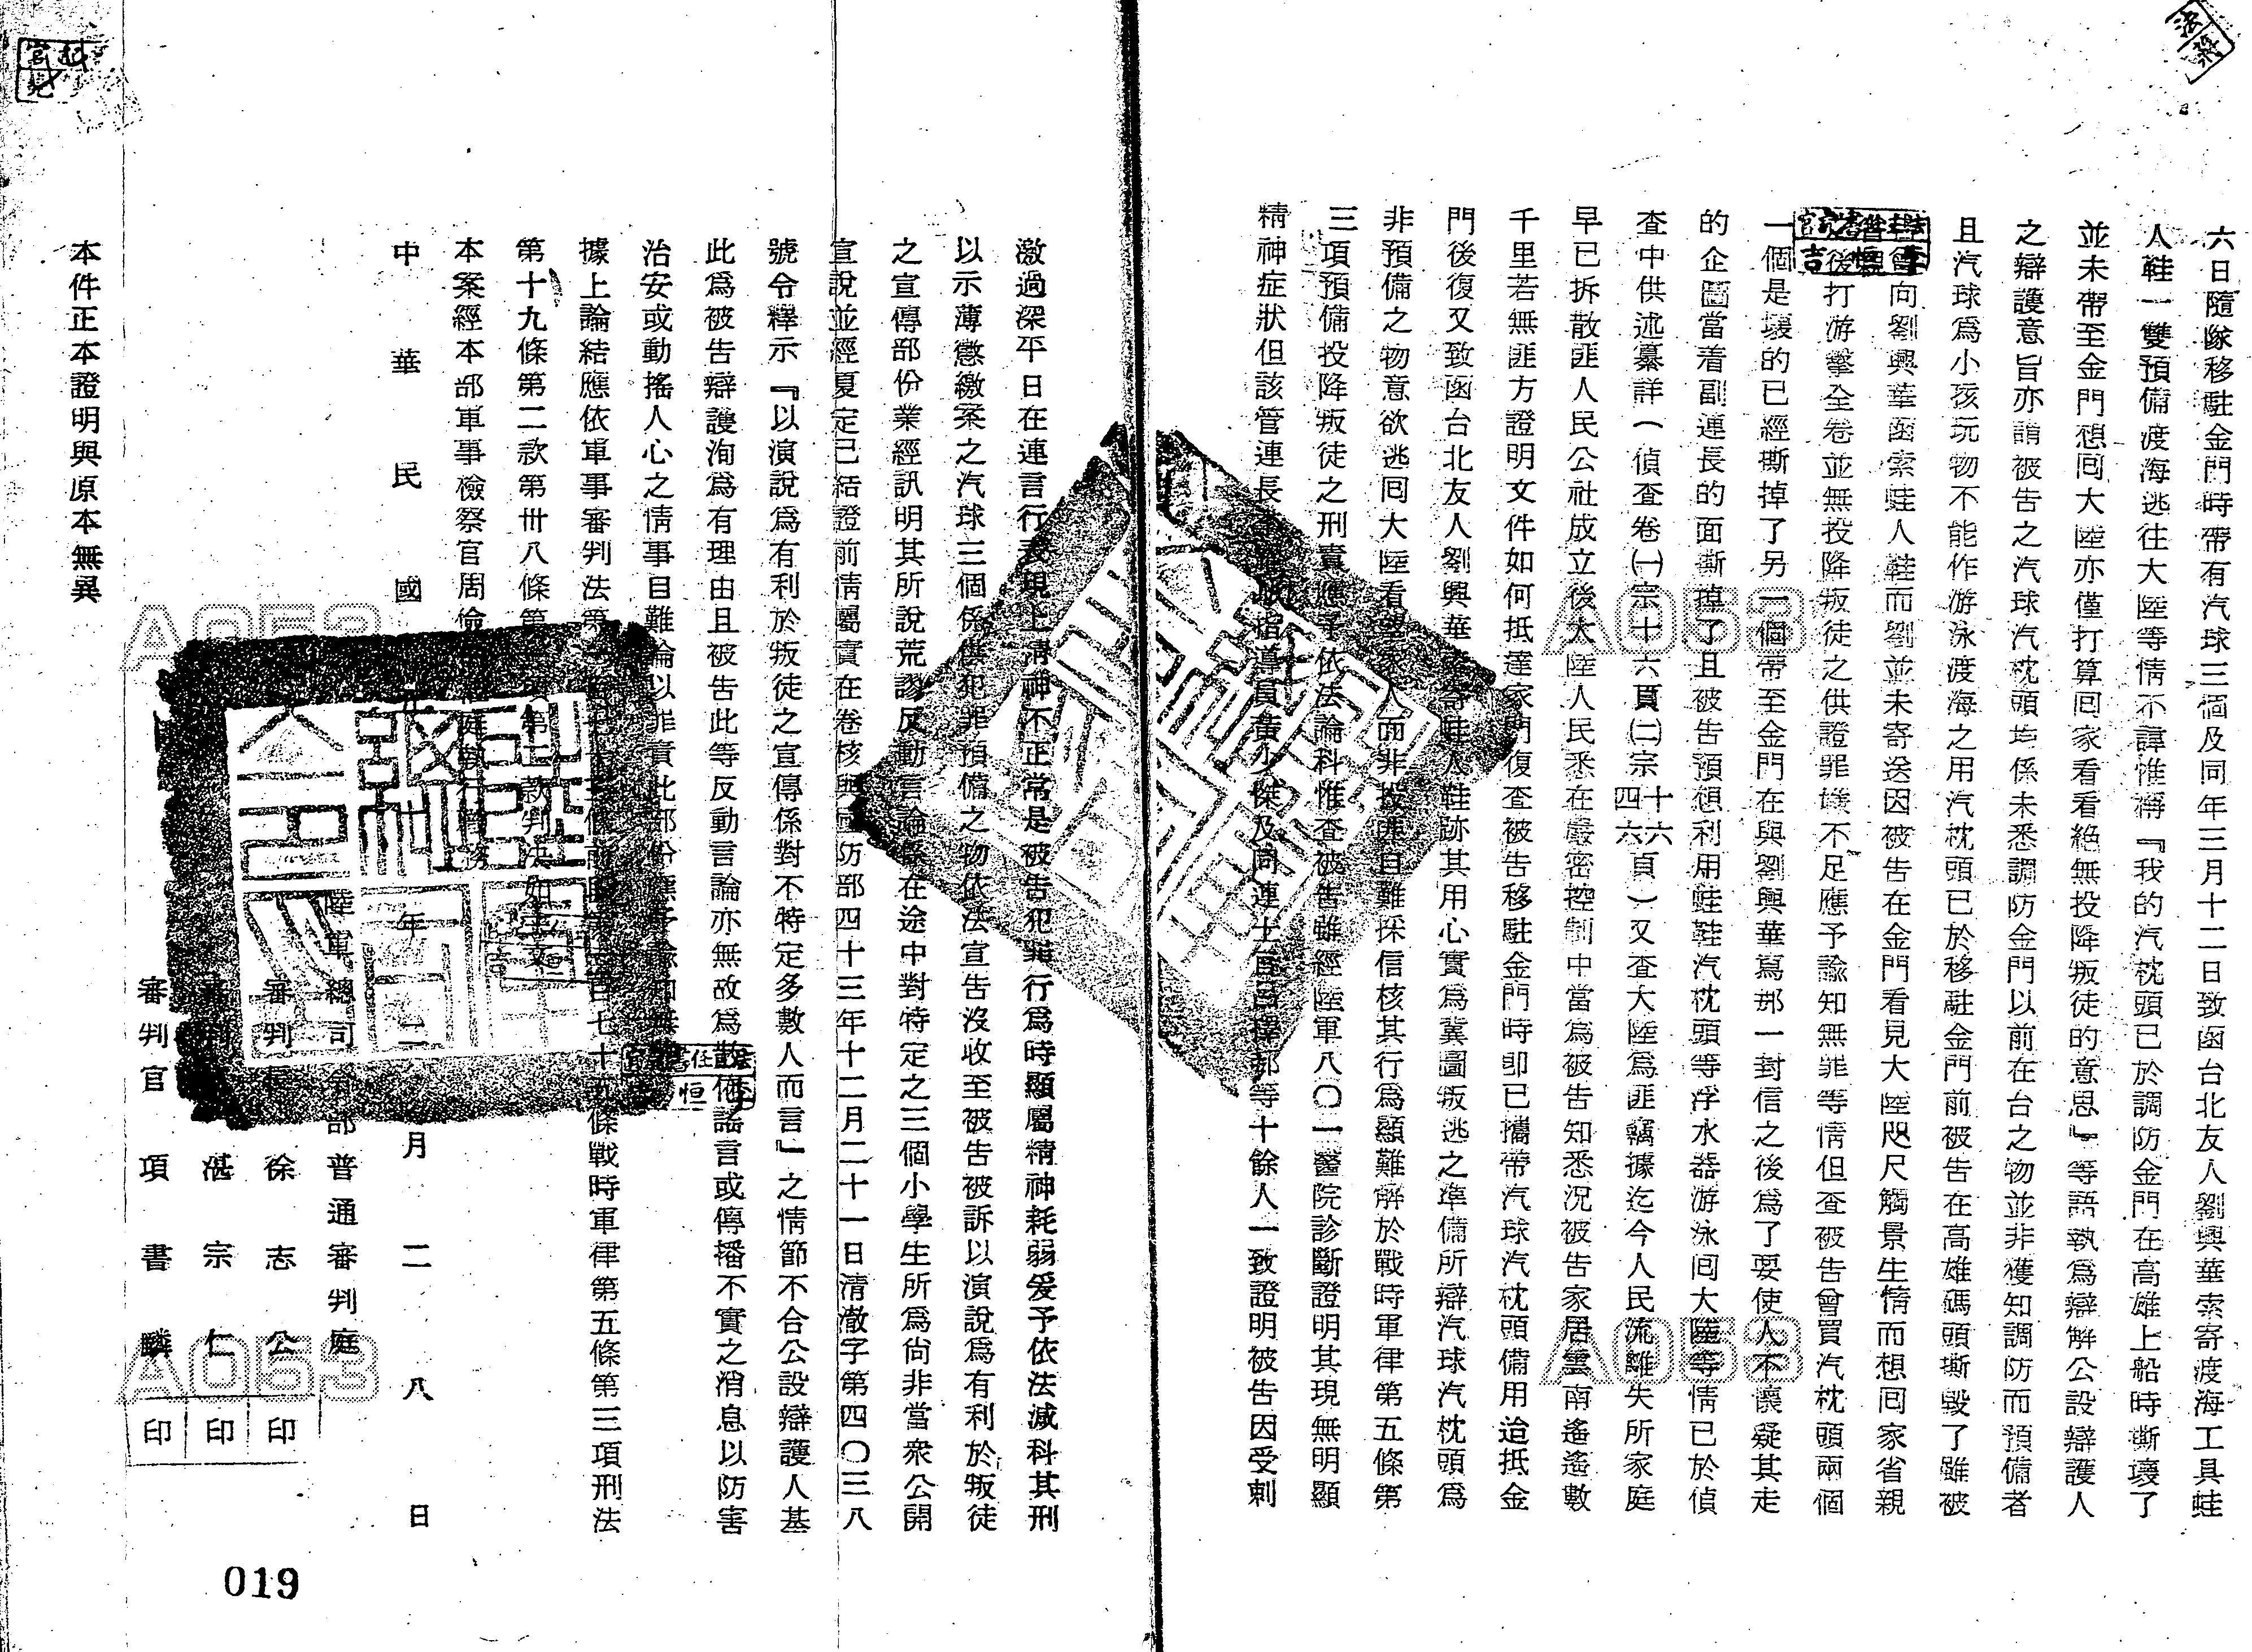 六日隨隊移駐金門時帶有汽球三個及同年三月十二日致函台北友人劉興華索寄渡海工具蛙
人鞋一雙預備渡海逃往大陸等情不諱惟辯『我的汽枕頭已於調防金門在高雄上船時撕壞了
並未帶至金門想囘大陸亦僅打算囘家看看絕無投降叛徒的意思』等語執爲辯解公設辯護人
之辯護意旨亦謂被告之汽球汽枕頭均係未悉調防金門以前在台之物並非獲知調防而預備者
且汽球爲小孩玩物不能作游泳渡海之用汽枕頭已於移駐金門前被告在高雄碼頭撕毀了雖被
向劉興華函索蛙人鞋而劉並未寄送因被告在金門看見大陸咫尺觸景生情而想囘家省親
後打游擊全卷並無投降叛徒之供證罪嫌不足應予諭知無罪等情但查被告曾買汽枕頭兩個
一個是壞的已經撕掉了另一個帶至金門在與劉興華寫那一封信之後爲了要使人不懷疑其走
的企圖當着副連長的面撕掉了且被告預想利用蛙鞋汽枕頭等浮水器游泳囘大陸等情已於偵
查中供述纂詳(偵查卷㈠宗十六頁㈡宗四六十六頁)又查大陸爲匪竊據迄今人民流離失所家庭
早已拆散匪人民公社成立後大陸人民悉在嚴密控制中當爲被告知悉況被告家居雲南遙遙數
千里若無匪方證明文件如何抵達家門復查被告移駐金門時卽已攜帶汽球汽枕頭備用迨抵金
門後復又致函台北友人劉興華索寄蛙人鞋跡其用心實爲冀圖叛逃之準備所辯汽球汽枕頭爲
非預備之物意欲逃囘大陸看望家人而非投降自難採信核其行爲顯難解於戰時軍律第五條第
三項預備投降叛徒之刑責應予依法論科惟查被告雖經陸軍八〇一醫院診斷證明其現無明顯
精神症狀但該管連長指導員黃少傑及同連士官等十餘人一致證明被告因受刺
激過深平日在連言行表現上精神不正常是被告犯罪行爲時顯屬精神耗弱爰予依法減科其刑
以示薄懲繳案之汽球三個係供犯罪預備之物依法宣告沒收至被告被訴以演說爲有利於叛徒
之宣傳部份業經訊明其所說荒謬反動言論係在途中對特定之三個小學生所爲尙非當衆公開
宣說並經夏定已結證前情屬實在卷核與國防部四十三年十二月二十一日清澈字第四〇三八
號令釋示『以演說爲有利於叛徒之宣傳係對不特定多數人而言』之情節不合公設辯護人基
此爲被告辯護洵爲有理由且被告此等反動言論亦無故爲散佈謠言或傳播不實之消息以防害
治安或動搖人心之情事目難論以罪責此部份應予諭知無罪
據上論結應依軍事審判法第七十五條戰時軍律第五條第三項刑法
第十九條第二款第卅八條第第二款判決如主文
本案經本部軍事檢察官周儉庭執行職務
中華民國年二月二八日
陸軍總司令部普通審判庭
審判長徐志公 印
審判官湛宗仁 印
審判官項書麟 印
本件正本證明與原本無異
019